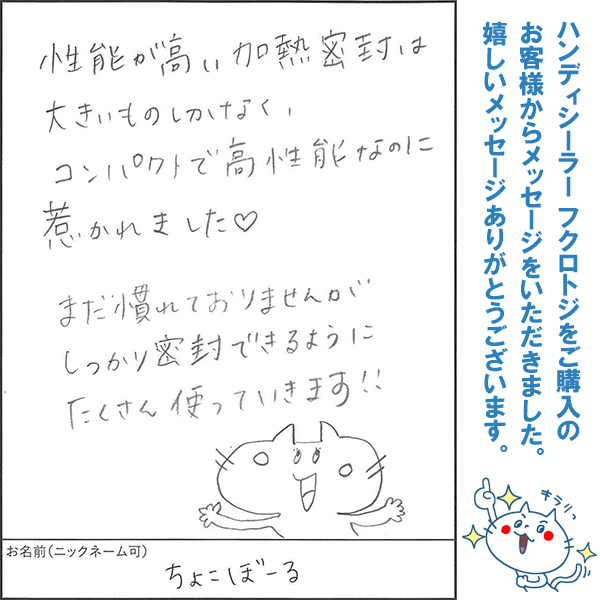 ハンディシーラー フクロトジをご購入の
お客様からメッセージをいただきました。
嬉しいメッセージありがとうございます。
性能が高い加熱密封は
大きいものしかなく、
コンパクトで高性能なのに
惹かれました♡
まだ慣れておりませんが
しっかり密封できるように
たくさん使っていきます!!
お名前(ニックネーム可)
ちょこぼーる
キラリっ